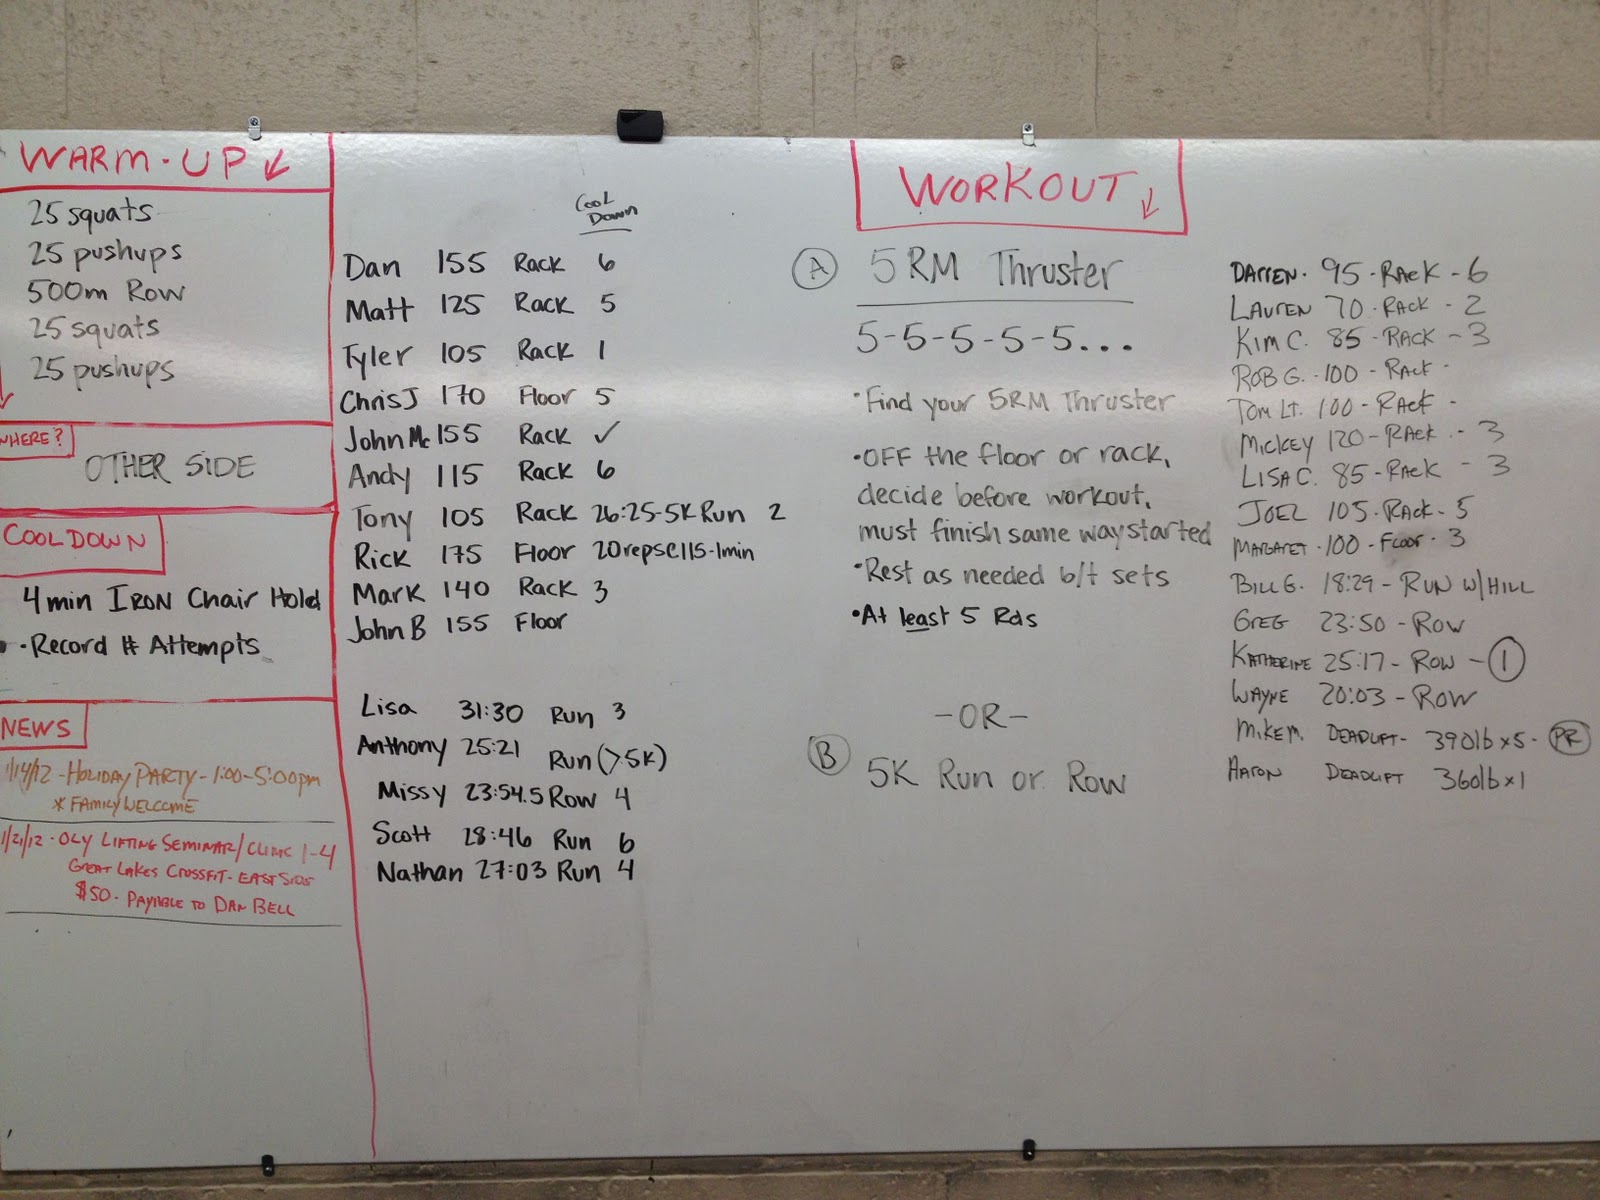 WARM-UP
25 squats
25 pushups
500m Row
25 squats
25 pushups
WHERE?
OTHER SIDE
COOLDOWN
4 min IRON Chair Hold
• Record # Attempts
NEWS
1/14/12 - HOLIDAY PARTY - 1:00-5:00pm
* FAMILY WELCOME
1/21/12 - OLY LIFTING SEMINAR/CLINIC 1-4
GREAT LAKES CROSSFIT - EAST SIDE
$50 - PAYABLE TO DAN BELL
COOL
DOWN
Dan 155 Rack 6
Matt 125 Rack 5
Tyler 105 Rack 1
Chris J 170 Floor 5
John Mc 155 Rack ✓
Andy 115 Rack 6
Tony 105 Rack 26:25-5K Run 2
Rick 175 Floor 20reps@115-1min
Mark 140 Rack 3
John B 155 Floor
Lisa 31:30 Run 3
Anthony 25:21 Run (>5K)
Missy 23:54.5 Row 4
Scott 28:46 Run 6
Nathan 27:03 Run 4
WORKOUT
A 5RM Thruster
5-5-5-5-5...
• Find your 5RM Thruster
• OFF the floor or rack,
decide before workout,
must finish same way started
• Rest as needed b/t sets
• At least 5 Rds
-OR-
B 5K Run or Row
DARREN - 95 - RACK - 6
LAUREN 70 - RACK - 2
KIM C. 85 - RACK - 3
ROB G. - 100 - RACK -
TOM LT. 100 - RACK -
MICKEY 120 - RACK - 3
LISA C. 85 - RACK - 3
JOEL 105 - RACK - 5
MARGARET - 100 - FLOOR - 3
BILL G. 18:29 - RUN W/HILL
GREG 23:50 - ROW
KATHERINE 25:17 - ROW - 1
WAYNE 20:03 - ROW
MIKE M. DEADLIFT - 390lb x 5 - PR
AARON DEADLIFT 360lb x 1